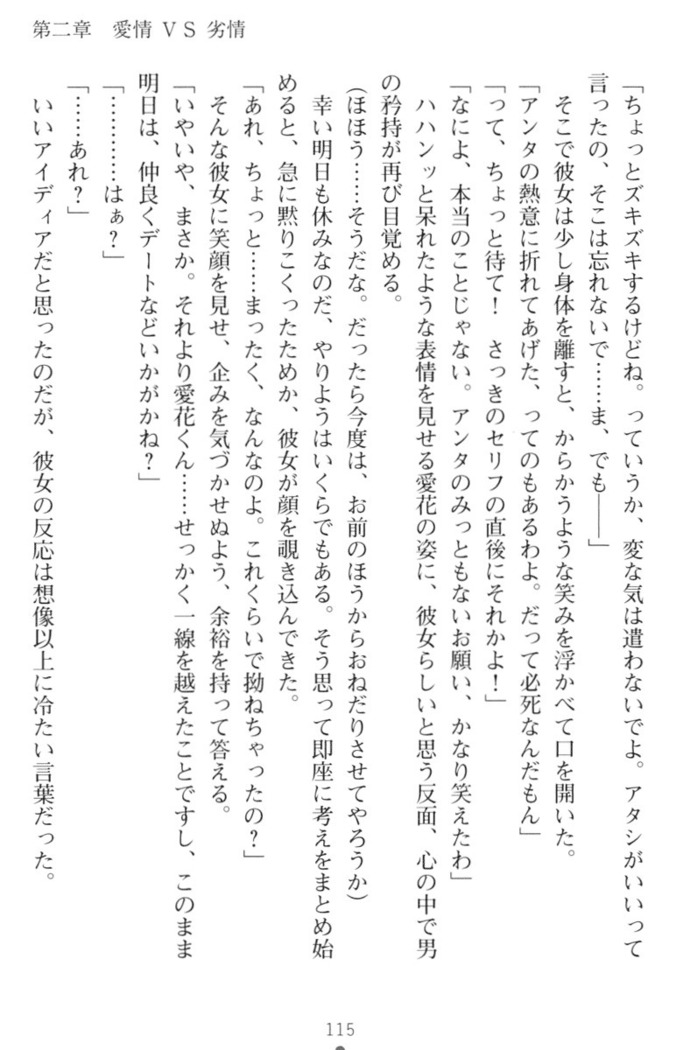 第二章　愛情 VS 劣情
「ちょっとズキズキするけどね。っていうか、変な気は遣わないでよ。アタシがいいって
言ったの、そこは忘れないで……ま、でも――」
　そこで彼女は少し身体を離すと、からかうような笑みを浮かべて口を開いた。
「アンタの熱意に折れてあげた、ってのもあるわよ。だって必死なんだもん」
「って、ちょっと待て！　さっきのセリフの直後にそれかよ！」
「なによ、本当のことじゃない。アンタのみっともないお願い、かなり笑えたわ」
　ハハンッと呆れたような表情を見せる愛花の姿に、彼女らしいと思う反面、心の中で男
の矜持が再び目覚める。
（ほほう……そうだな。だったら今度は、お前のほうからおねだりさせてやろうか）
　幸い明日も休みなのだ、やりようはいくらでもある。そう思って即座に考えをまとめ始
めると、急に黙りこくったためか、彼女が顔を覗き込んできた。
「あれ、ちょっと……まったく、なんなのよ。これくらいで拗ねちゃったの？」
　そんな彼女に笑顔を見せ、企みを気づかせぬよう、余裕を持って答える。
「いやいや、まさか。それより愛花くん……せっかく一線を越えたことですし、このまま
明日は、仲良くデートなどいかがかね？」
「…………はぁ？」
「……あれ？」
　いいアイディアだと思ったのだが、彼女の反応は想像以上に冷たい言葉だった。
115